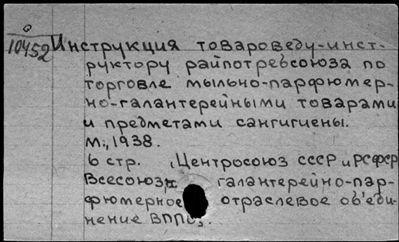 0
10452 Инструкция товароведу-инст-
руктору райпотребсоюза по
торговле мыльно-парфюмер-
но-галантерейными товарами
и предметами сангигиены.
М., 1938.
6 стр. (Центросоюз СССР и РСФСР
Всесоюзн галантерейно-пар-
фюмерное отраслевое об'еди-
нение ВППО).